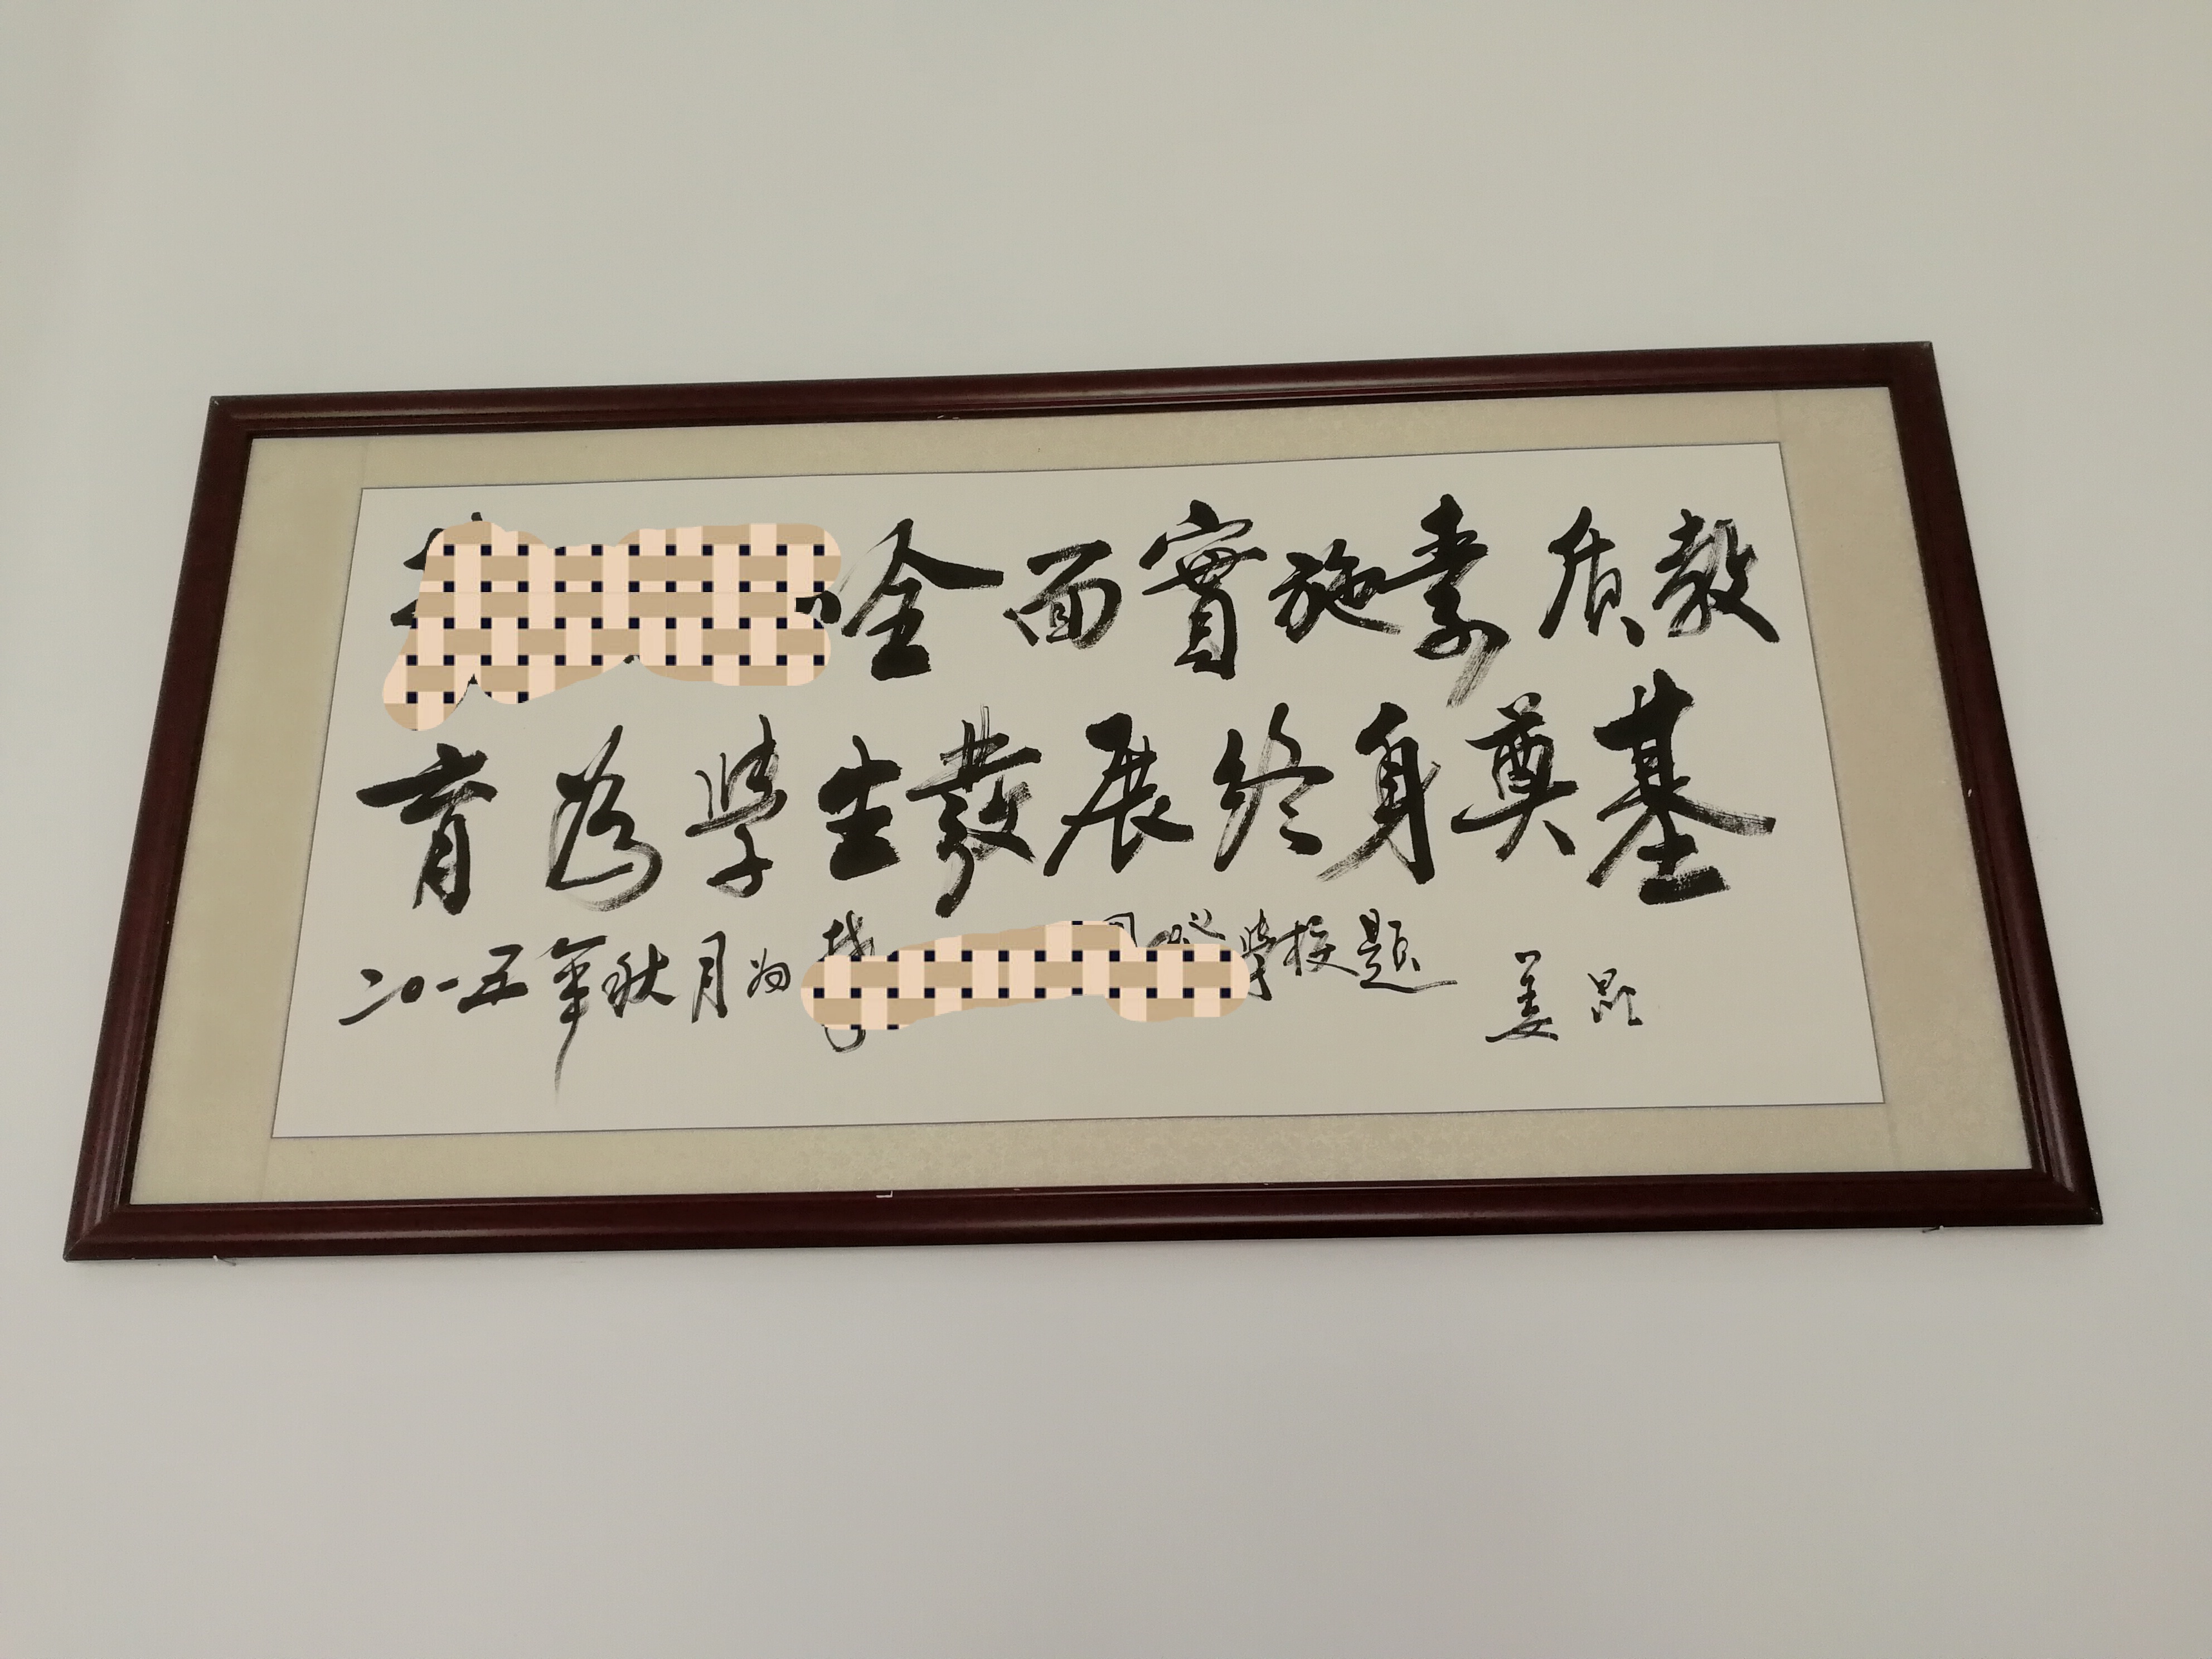 全面實施素质教
育為學生發展终身奠基
二〇一五年秋月为學校题 姜昆